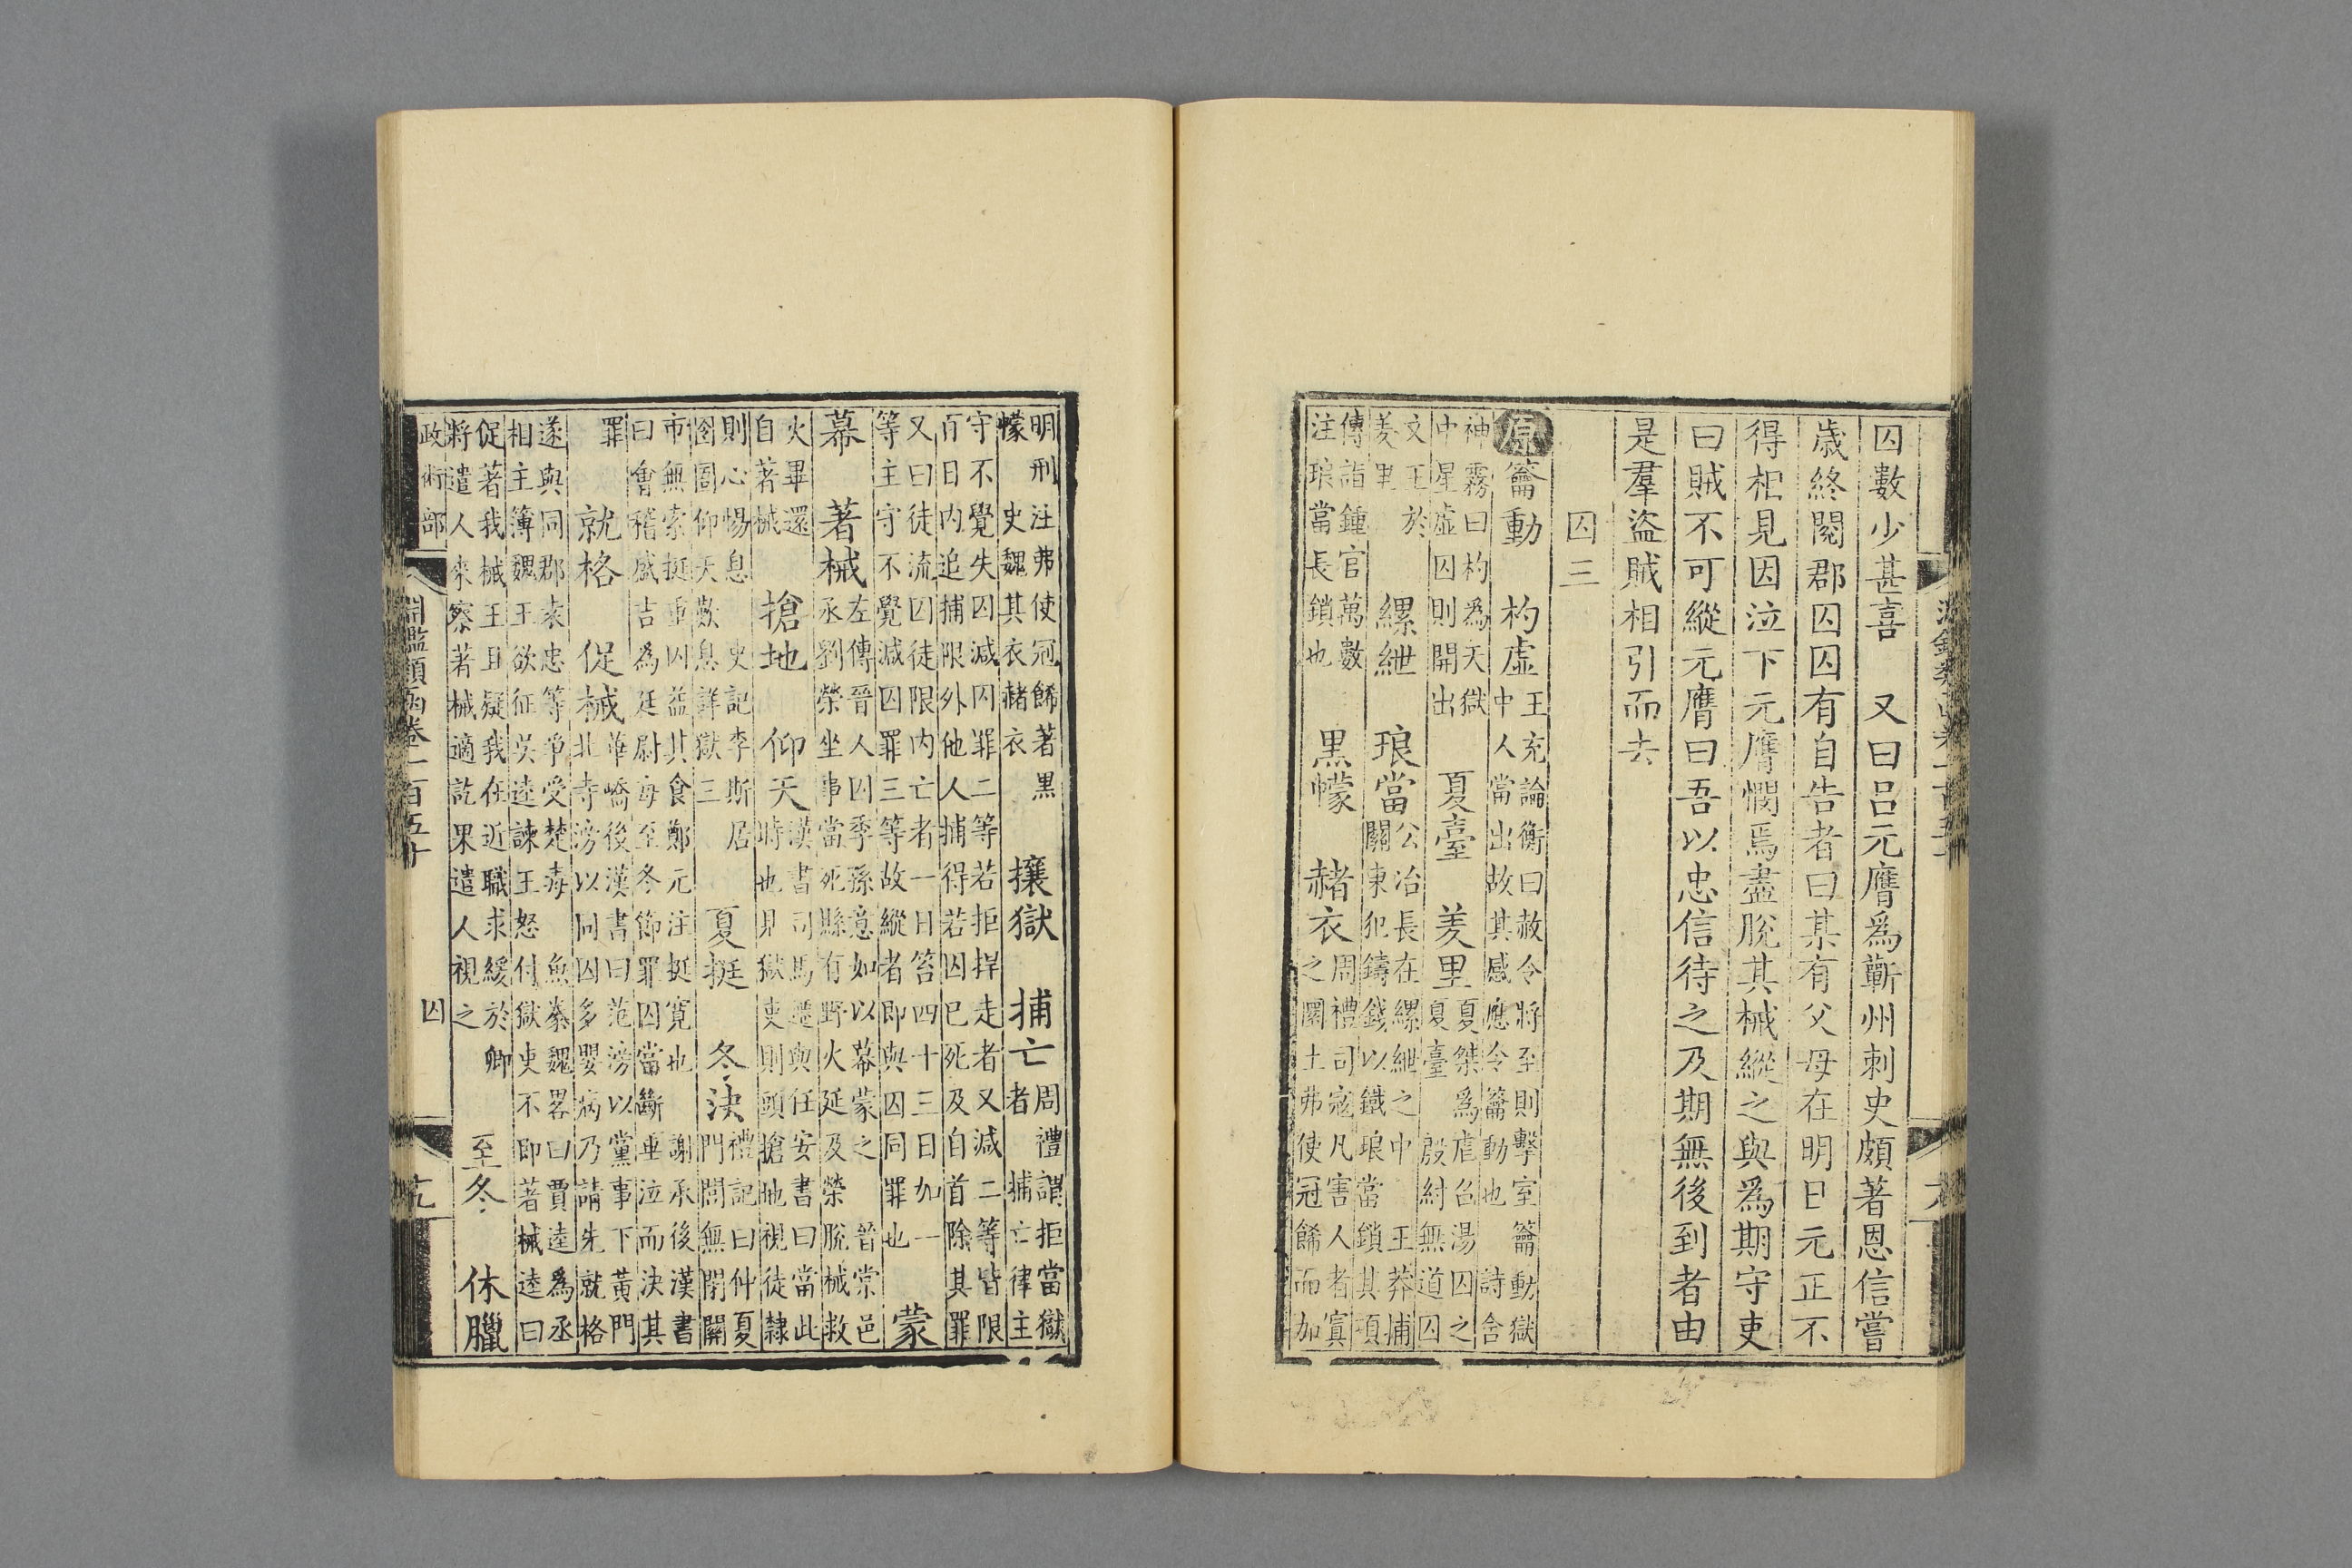 囚數少甚喜 又曰吕元膺爲蘄州刺史頗著恩信嘗
歲終閱郡囚囚有自告者曰某有父母在明日元正不
得相見因泣下元膺憫焉盡脫其械縱之與爲期守吏
曰賊不可縱元膺曰吾以忠信待之及期無後到者由
是羣盜賊相引而去
囚三
原籥動 杓虛王充論衡曰赦令將至則擊室籥動獄
中人當出故其感應令籥動也 詩含
神霧曰杓爲天獄
中星虛囚則開出 夏臺 羑里夏桀爲虐召湯囚之
夏臺 殷紂無道囚
文王於
羑里 縲紲 琅當公冶長在縲紲之中 王莽捕
關東犯鑄錢以鐵琅當鎖其項
傳詣鍾官萬數
注琅當長鎖也 黑幪 赭衣周禮司寇凡害人者寘
之圜土弗使冠餙而加
明刑注弗使冠餙著黑
幪 史魏其衣赭衣 攘獄 捕亡周禮謂拒當獄
者 捕亡律主
守不覺失囚減囚罪二等若拒捍走者又減二等皆限
百日内追捕限外他人捕得若囚已死及自首除其罪
又曰徒流囚徒限内亡者一日笞四十三日加一
等主守不覺減囚罪三等故縱者即與囚同罪也 蒙
幕 著械左傳晉人囚季孫意如以幕蒙之 晉常邑
丞劉榮坐事當死縣有野火延及榮脫械救
火畢還
自著械 搶地 仰天漢書司馬遷與任安書曰當此
時也見獄吏則頭搶地視徒隸
則心惕息 史記李斯居
囹圄仰天歎息詳獄三 夏挺 冬決禮記曰仲夏
門閭無閉關
市無索挺重囚益其食鄭元注挺寛也 謝承後漢書
曰會稽盛吉為廷尉每至冬節罪囚當斷垂泣而決其
罪 就格 促械華嶠後漢書曰范滂以黨事下黃門
北寺滂以同囚多嬰病乃請先就格
遂與同郡袁忠等爭受楚毒 魚豢魏畧曰賈逵爲丞
相主簿魏王欲征吳逵諫王怒付獄吏不即著械逵曰
促著我械王且疑我在近職求緩於卿
將遣人來察著械適訖果遣人視之 至冬 休臘
政術部 淵鑑類函卷一百五十 囚